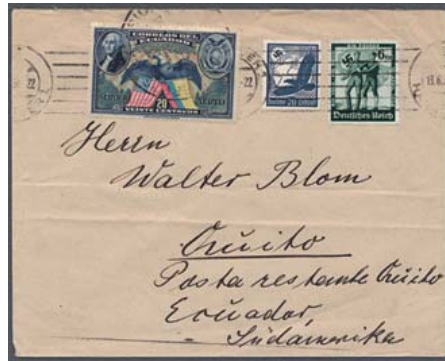 CORREOS DEL
ECUADOR
SERVICIO AEREO
20
VEINTE CENTAVOS
22
22
Deutsches Reich
Herrn
Walter Blom
Quito
Posta restante Quito
Ecuador,
Südamerika